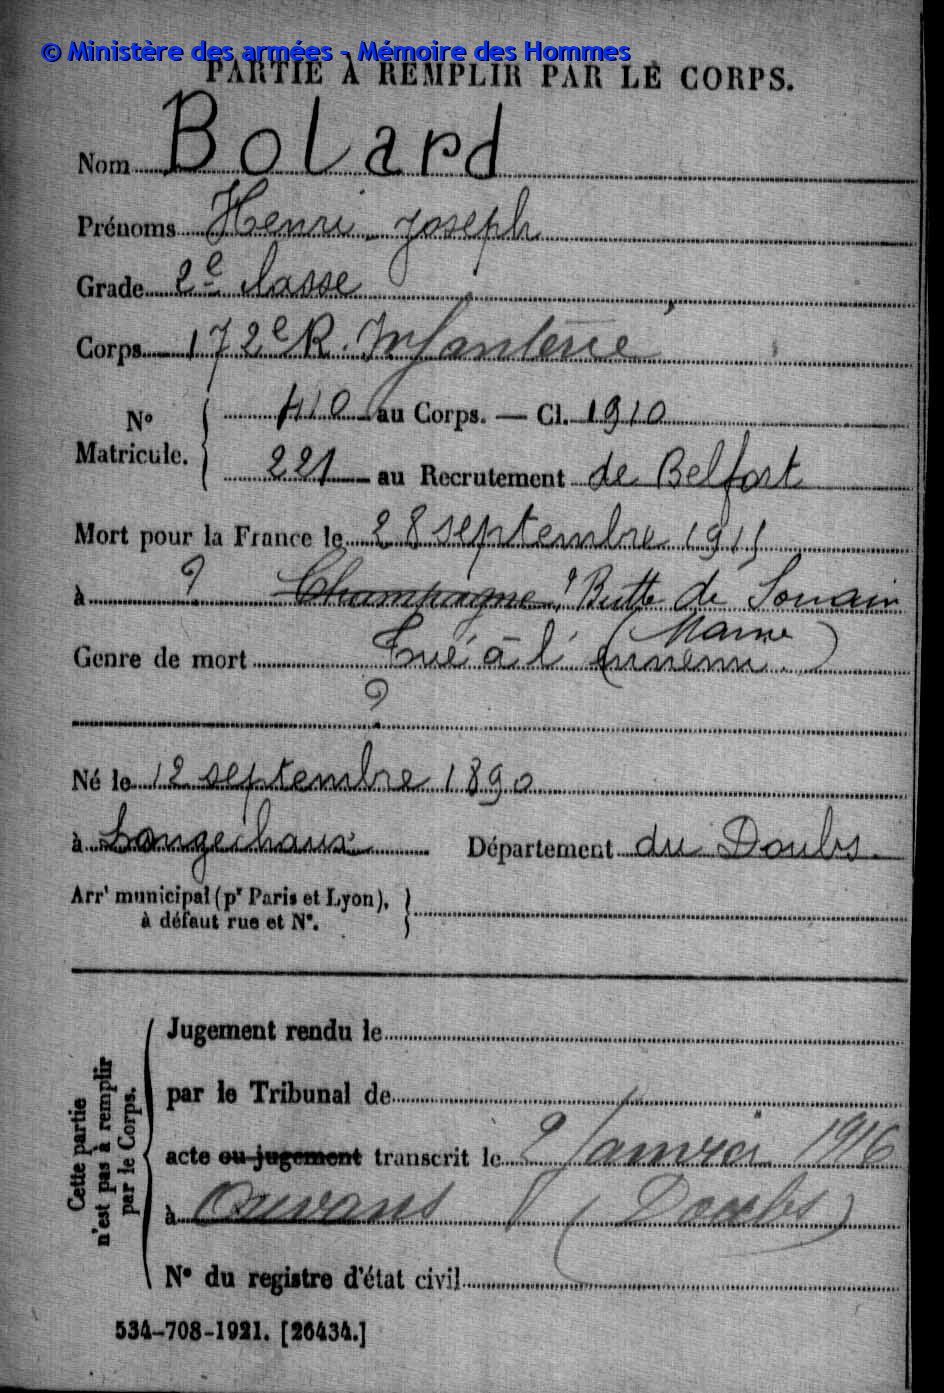 © Ministère des armées - Mémoire des Hommes
PARTIE À REMPLIR PAR LE CORPS.
Nom Bolard
Prénoms Henri Joseph
Grade 2e classe
Corps 172e R. Infanterie
No Matricule. 410 au Corps. — Cl. 1910
221 au Recrutement de Belfort
Mort pour la France le 28 septembre 1915
à ? Champagne ? Butte de Souain
(Marne)
Genre de mort Tué à l'ennemi
?
Né le 12 septembre 1890
à Longechaux Département du Doubs.
Arrt municipal (pr Paris et Lyon),
à défaut rue et No.
Cette partie
n'est pas à remplir
par le Corps.
Jugement rendu le
par le Tribunal de
acte ou jugement transcrit le 9 Janvier 1916
à Orsans (Doubs)
No du registre d'état civil
534-708-1921. [26434.]